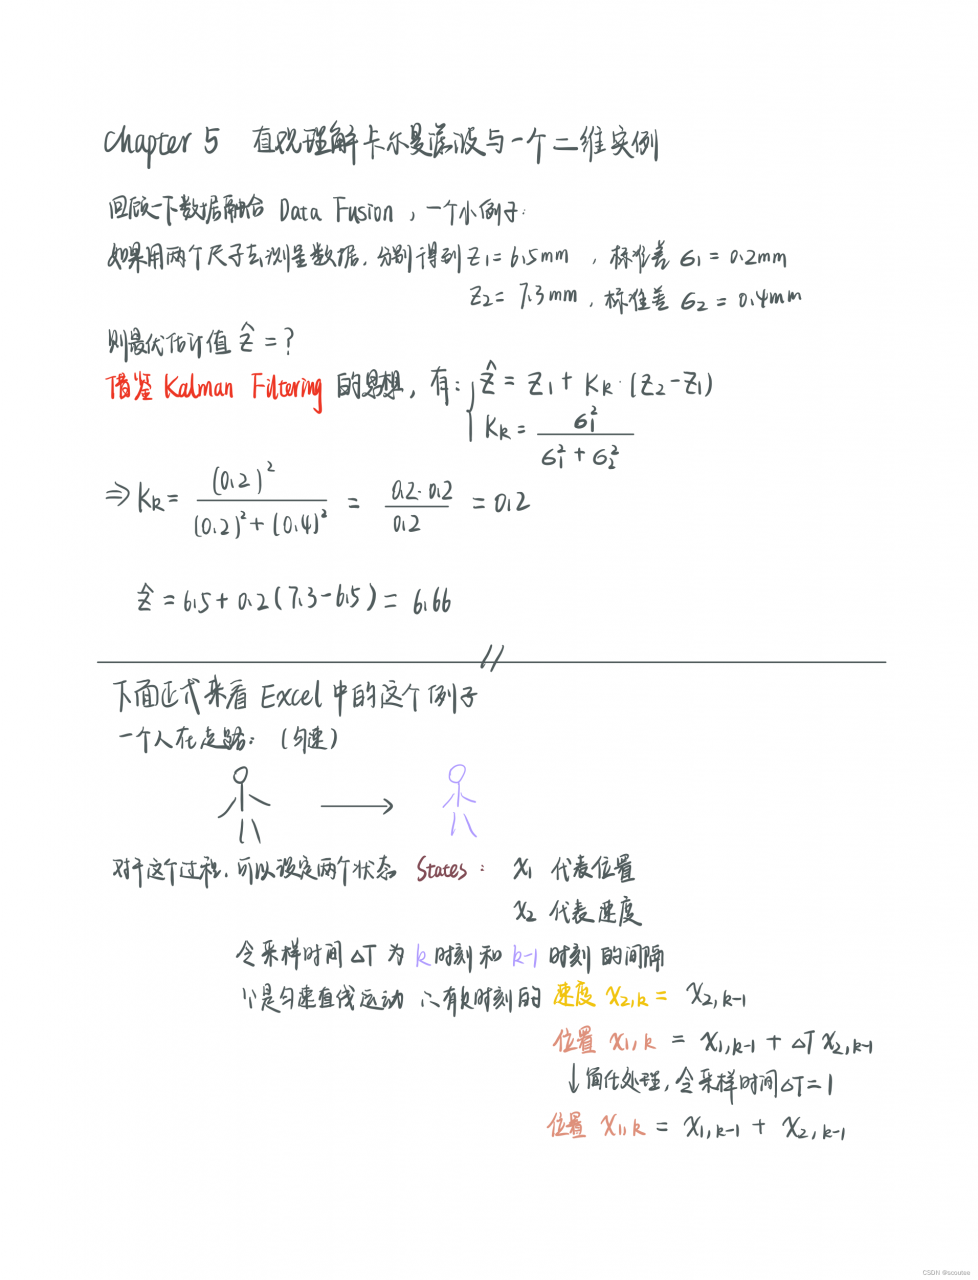 Chapter 5 直观理解卡尔曼滤波与一个二维实例
回顾一下数据融合 Data Fusion，一个小例子：
如果用两个尺子去测量数据，分别得到 Z1 = 6.5mm ，标准差 σ1 = 0.2mm
Z2 = 7.3mm，标准差 σ2 = 0.4mm
则最优估计值 ẑ = ?
借鉴 Kalman Filtering 的思想，有： ẑ = Z1 + Kk·(Z2-Z1)
Kk = σ1² / (σ1² + σ2²)
⇒ Kk = (0.2)² / ((0.2)² + (0.4)²) = 0.2·0.2 / 0.2 = 0.2
ẑ = 6.5 + 0.2(7.3-6.5) = 6.66
下面正式来看 Excel 中的这个例子
一个人在走路：（匀速）
对于这个过程，可以设定两个状态 States： x1 代表位置
x2 代表速度
令采样时间 ΔT 为 k 时刻和 k-1 时刻的间隔
∵是匀速直线运动 ∴有k时刻的 速度 x2,k = x2,k-1
位置 x1,k = x1,k-1 + ΔT x2,k-1
↓ 简化处理，令采样时间ΔT=1
位置 x1,k = x1,k-1 + x2,k-1